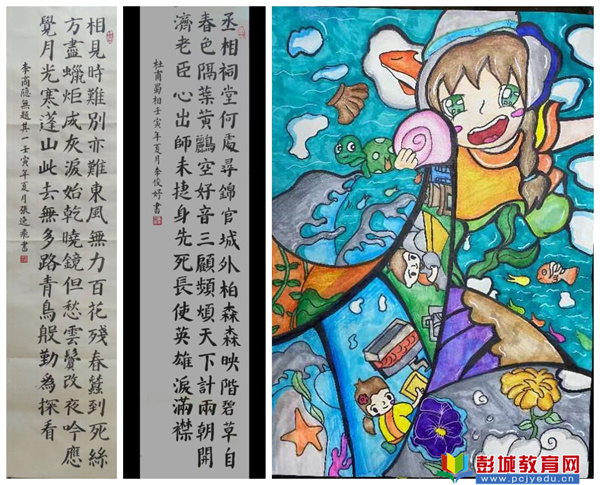 相見時難別亦難東風無力百花殘春蠶到死絲
方盡蠟炬成灰淚始乾曉鏡但愁雲鬢改夜吟應
覺月光寒蓬山此去無多路青鳥殷勤為探看
李商隱無題其一壬寅年夏月張逸書
丞相祠堂何處尋錦官城外柏森森映階碧草自
春色隔葉黃鸝空好音三顧頻煩天下計兩朝開
濟老臣心出師未捷身先死長使英雄淚滿襟
杜甫蜀相壬寅年夏月李俊妤書
彭城教育网
www.pcjyedu.cn